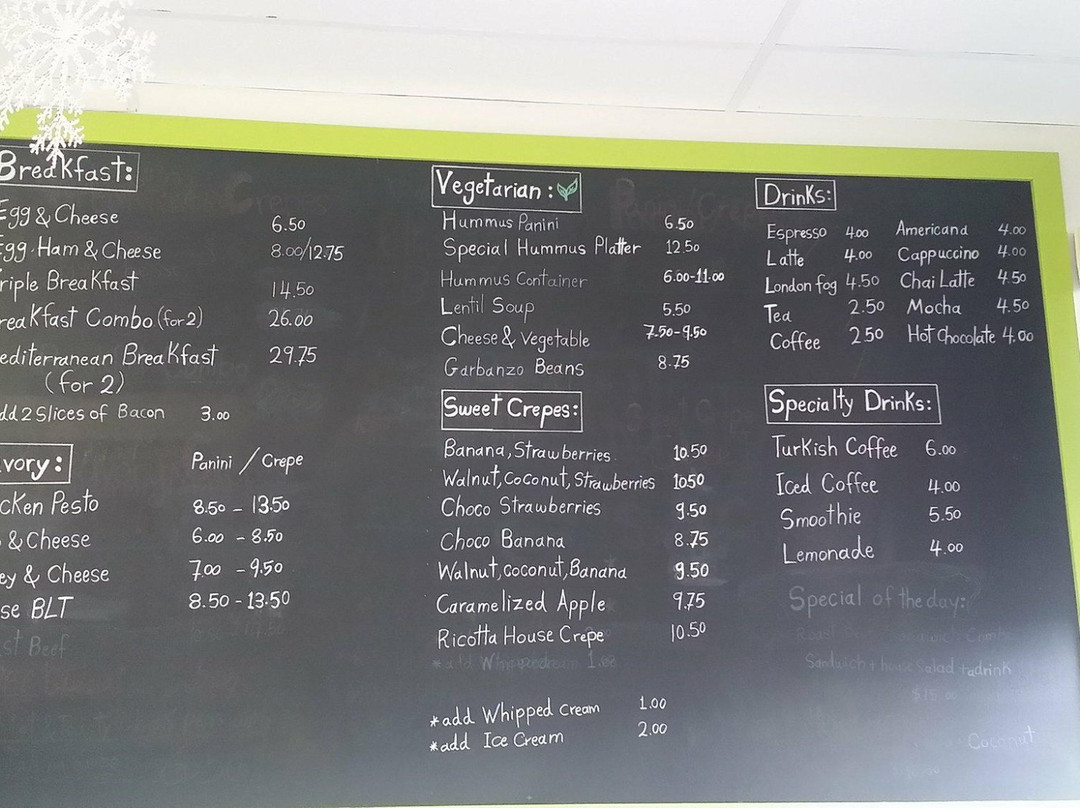 Breakfast:
Egg & Cheese 6.50
Egg Ham & Cheese 8.00/12.75
riple Breakfast 14.50
reakfast Combo (for 2) 26.00
editerranean Breakfast 29.75
(for 2)
dd 2 Slices of Bacon 3.00
vory: Panini / Crepe
cken Pesto 8.50 - 13.50
& Cheese 6.00 - 8.50
ey & Cheese 7.00 - 9.50
se BLT 8.50 - 13.50
st Beef
Vegetarian:
Hummus Panini 6.50
Special Hummus Platter 12.50
Hummus Container 6.00-11.00
Lentil Soup 5.50
Cheese & Vegetable 7.50-9.50
Garbanzo Beans 8.75
Sweet Crepes:
Banana, Strawberries 10.50
Walnut, Coconut, Strawberries 1050
Choco Strawberries 9.50
Choco Banana 8.75
Walnut, coconut, Banana 9.50
Caramelized Apple 9.75
Ricotta House Crepe 10.50
*add Whipped cream 1.00
*add Whipped cream 1.00
*add Ice Cream 2.00
Drinks:
Espresso 4.00 Americana 4.00
Latte 4.00 Cappuccino 4.00
London fog 4.50 Chai Latte 4.50
Tea 2.50 Mocha 4.50
Coffee 2.50 Hot Chocolate 4.00
Specialty Drinks:
Turkish Coffee 6.00
Iced Coffee 4.00
Smoothie 5.50
Lemonade 4.00
Special of the day:
Sandwich + house salad + adrink
Coconut